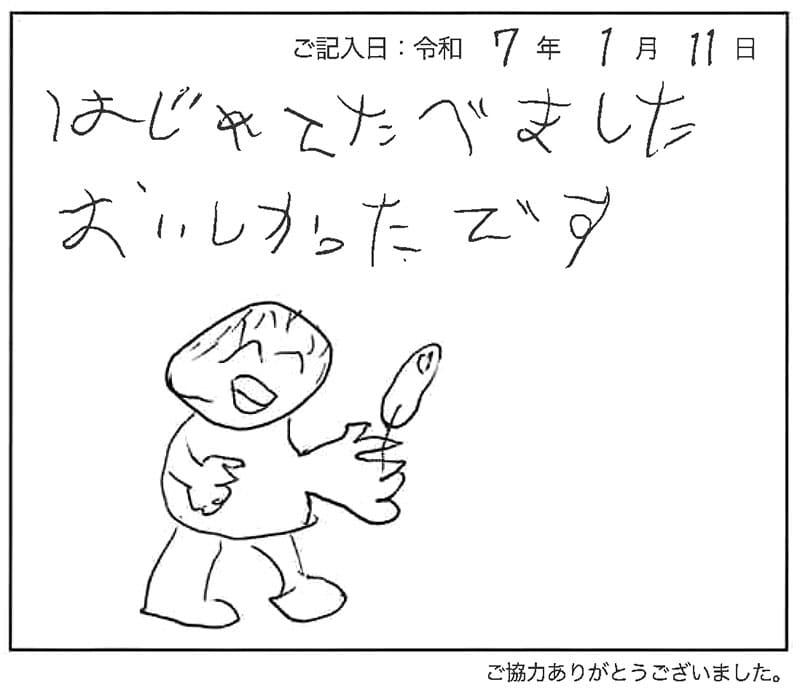 ご記入日：令和 7 年 1 月 11 日
はじめてたべました
おいしかったです
ご協力ありがとうございました。